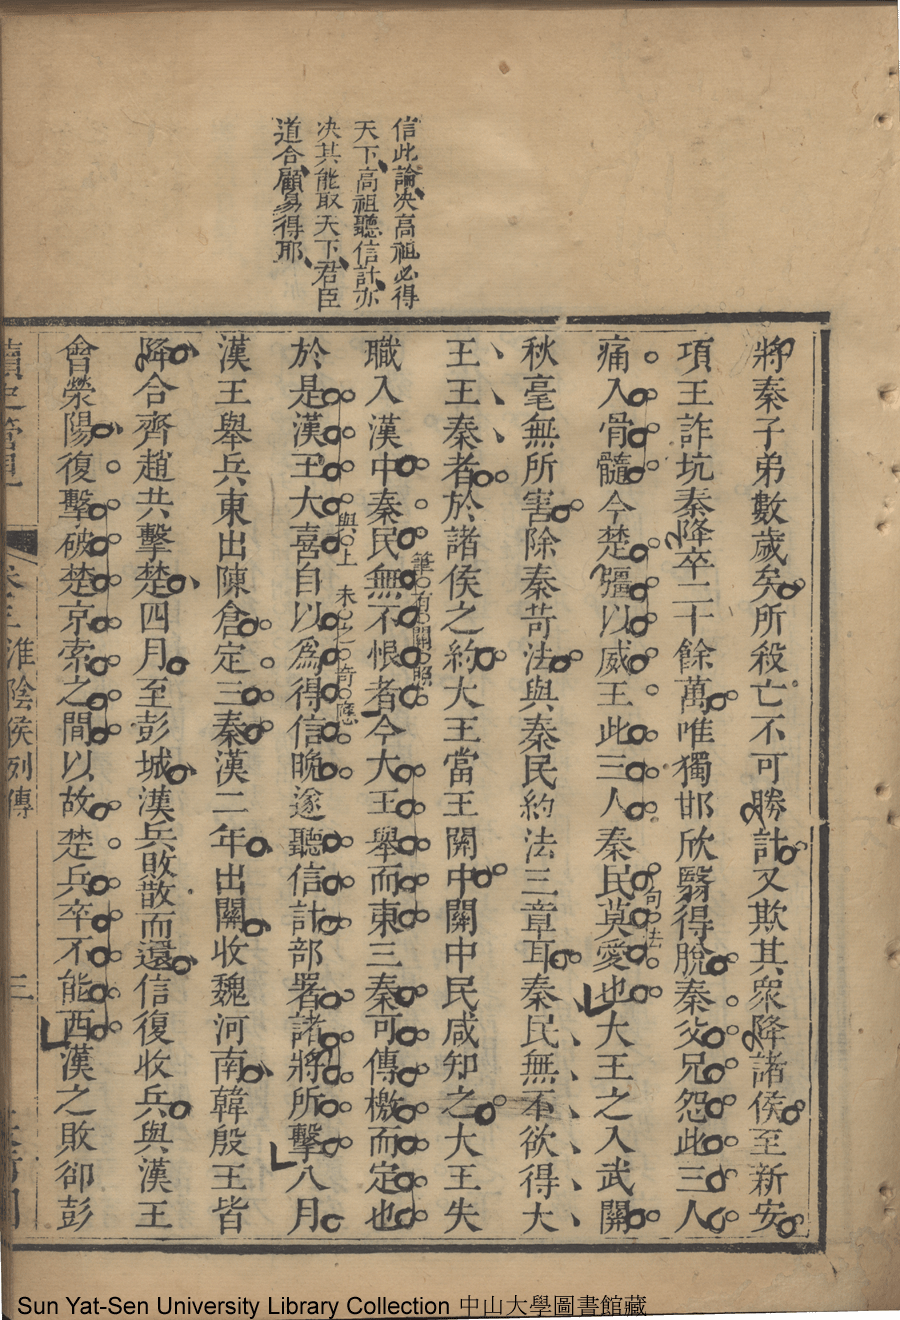 信此論決高祖必得
天下高祖聽信計亦
决其能取天下君臣
道合顧易得耶
將秦子弟數歲矣所殺亡不可勝計又欺其衆降諸侯至新安
項王詐坑秦降卒二十餘萬唯獨邯欣翳得脫秦父兄怨此三人
痛入骨髓今楚彊以威王此三人秦民莫愛也大王之入武關
句法
秋毫無所害除秦苛法與秦民約法三章耳秦民無不欲得大
王王秦者於諸侯之約大王當王關中關中民咸知之大王失
筆有關照
職入漢中秦民無不恨者今大王舉而東三秦可傳檄而定也
與上 未之奇應
於是漢王大喜自以爲得信晚遂聽信計部署諸將所擊八月
漢王舉兵東出陳倉定三秦漢二年出關收魏河南韓殷王皆
降合齊趙共擊楚四月至彭城漢兵敗散而還信復收兵與漢王
會滎陽復擊破楚京索之間以故楚兵卒不能西漢之敗卻彭
淮陰侯列傳 三
Sun Yat-Sen University Library Collection 中山大學圖書館藏